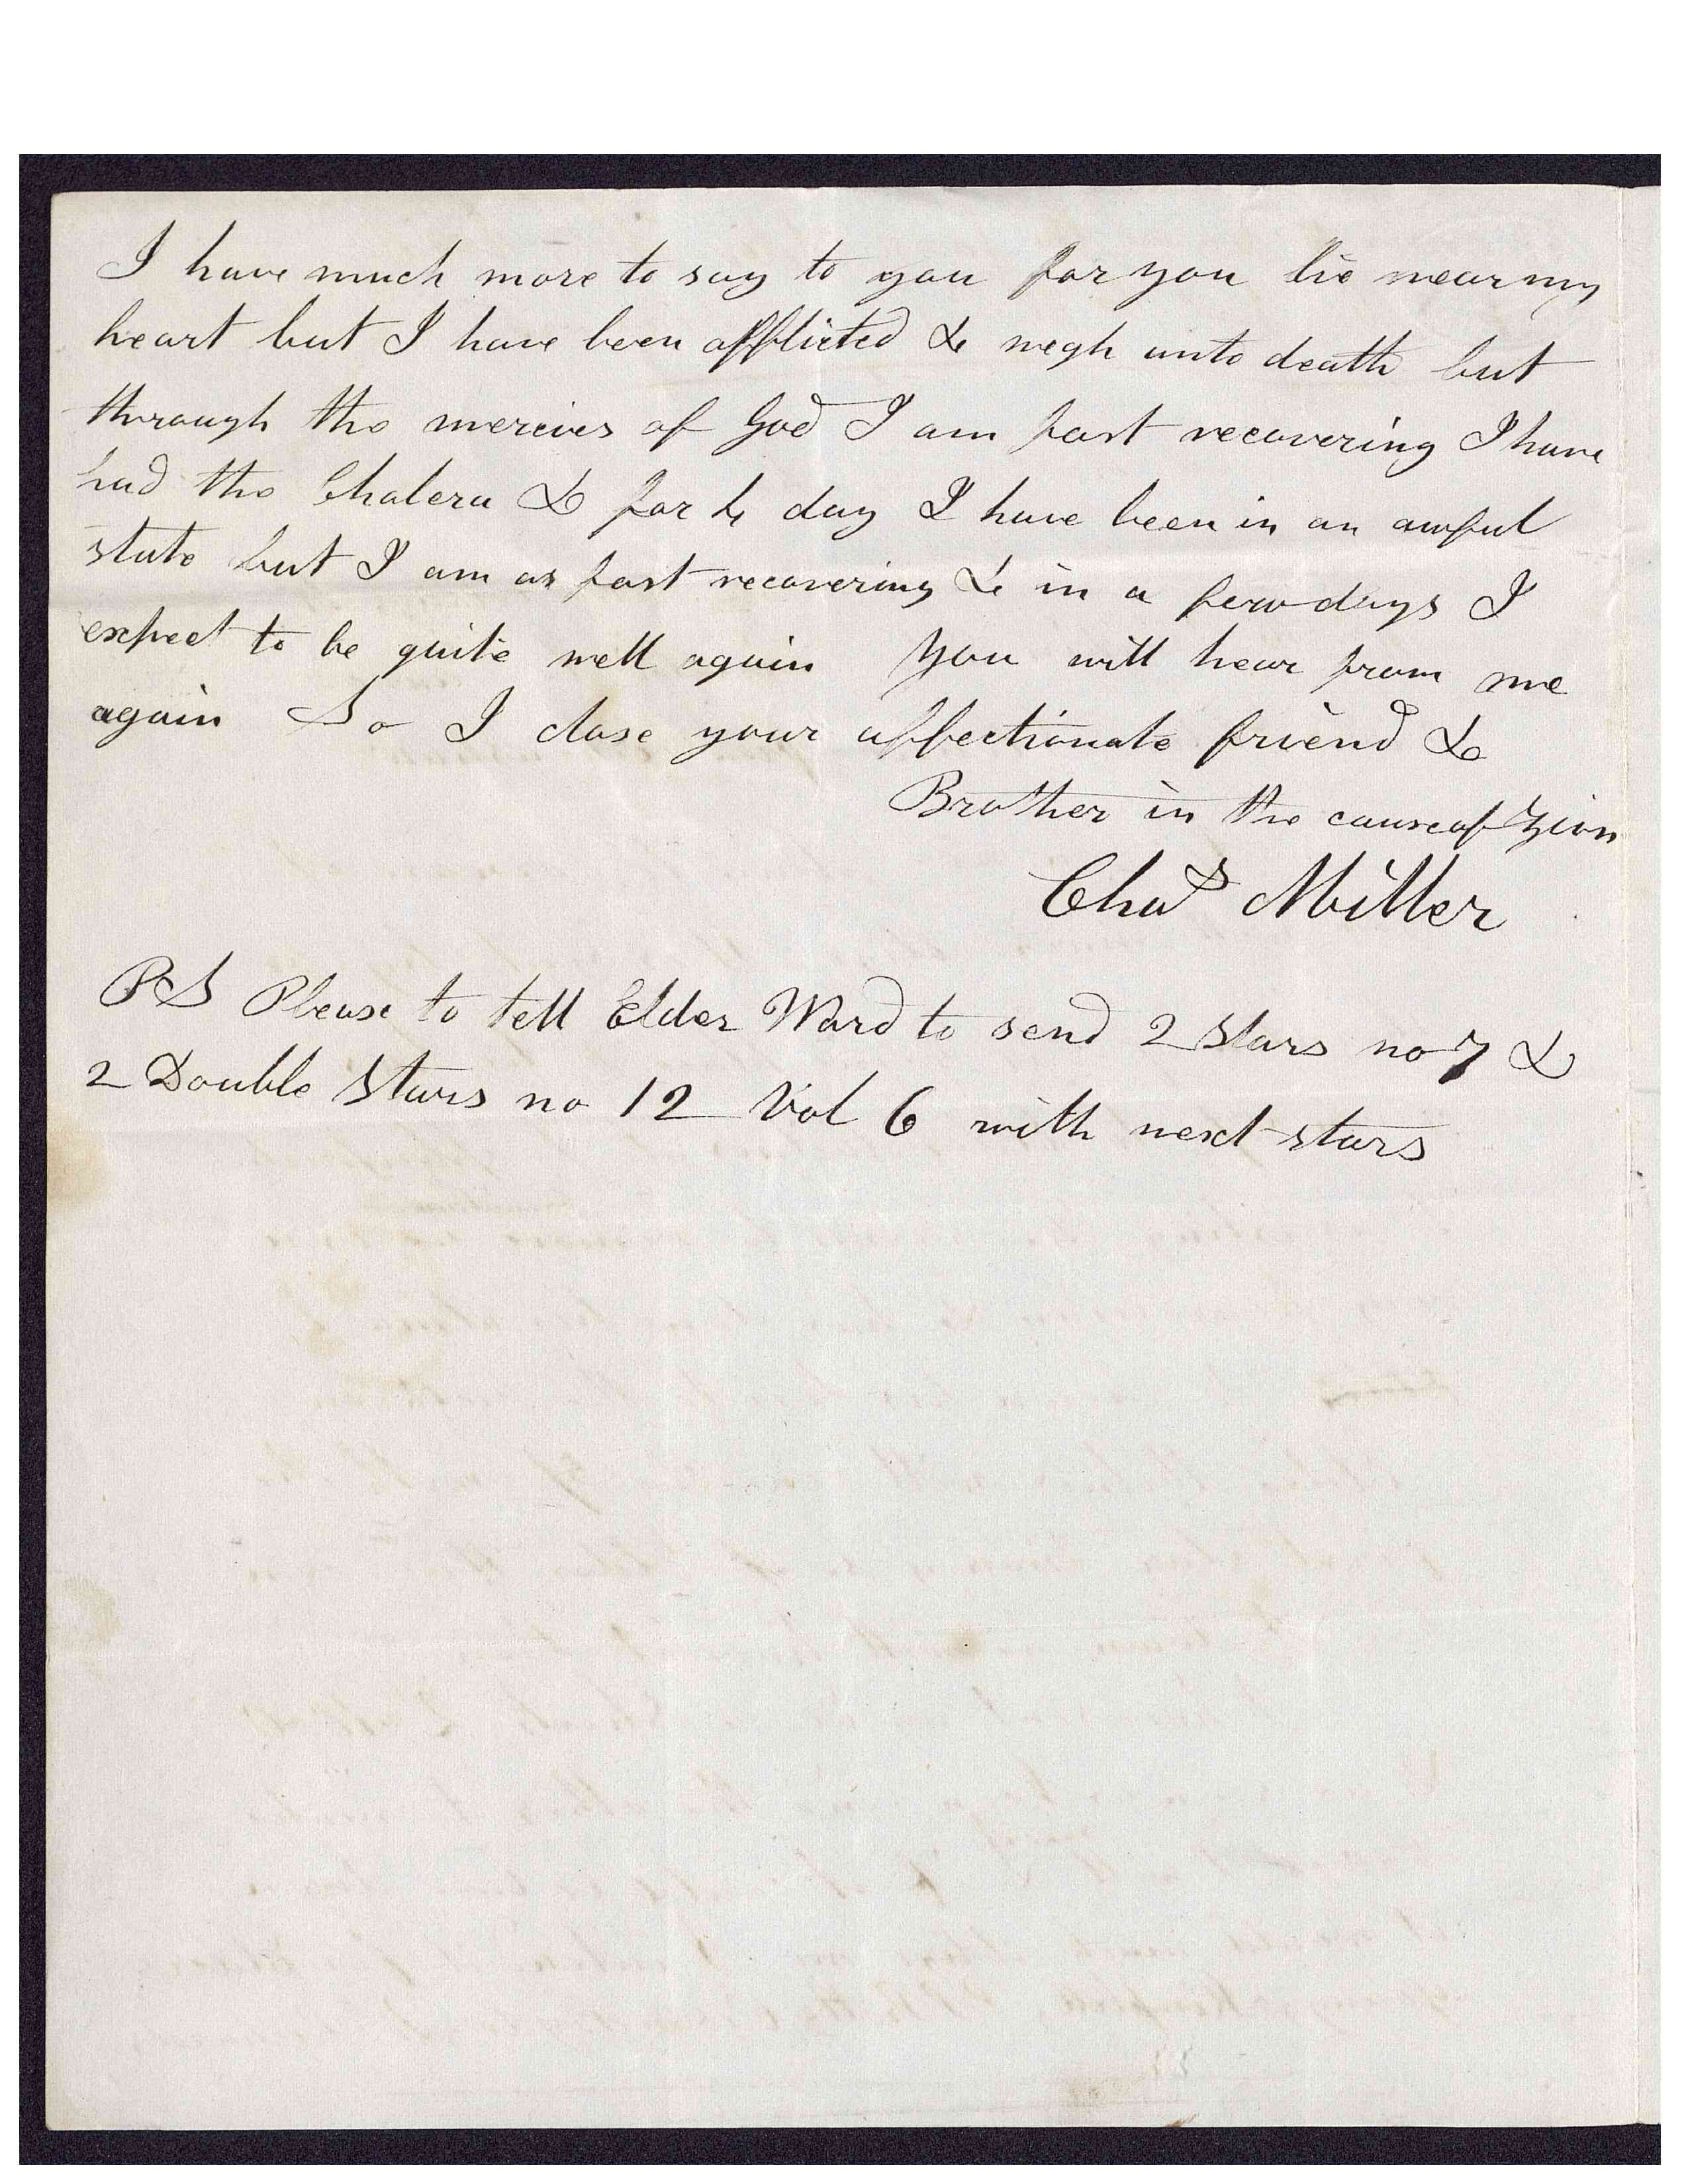 I have much more to say to you for you lie near my
heart but I have been afflicted & negh unto death but
through the mercies of God I am fast recovering I have
had the Cholera & for 4 day I have been in an awful
state but I am as fast recovering & in a few days I
expect to be quite well again you will hear from me
again So I close your affectionate friend &
Brother in the cause of Zion
Chas Miller
PS Please to tell Elder Ward to send 2 Stars no 7 &
2 Double Stars no 12 Vol 6 with next stars